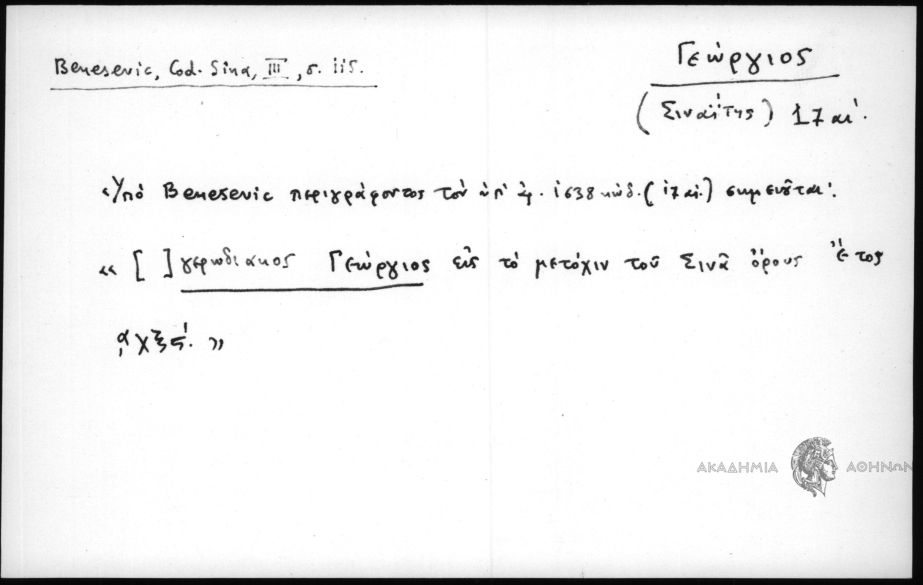 Benesevic, Cod. Sina, III, σ. 115.
Γεώργιος
(Σιναΐτης) 17 αἰ.
Ὑπό Benesevic περιγράφοντος τον ὑπ' ἀρ. 1638 κώδ. (17 αἰ.) σημειοῦται:
« [ ] γερωδιακος Γεώργιος εἰς τὸ μετόχιν τοῦ Σινᾶ ὄρους ἔτος
͵αχξς΄. »
ΑΚΑΔΗΜΙΑ ΑΘΗΝΩΝ